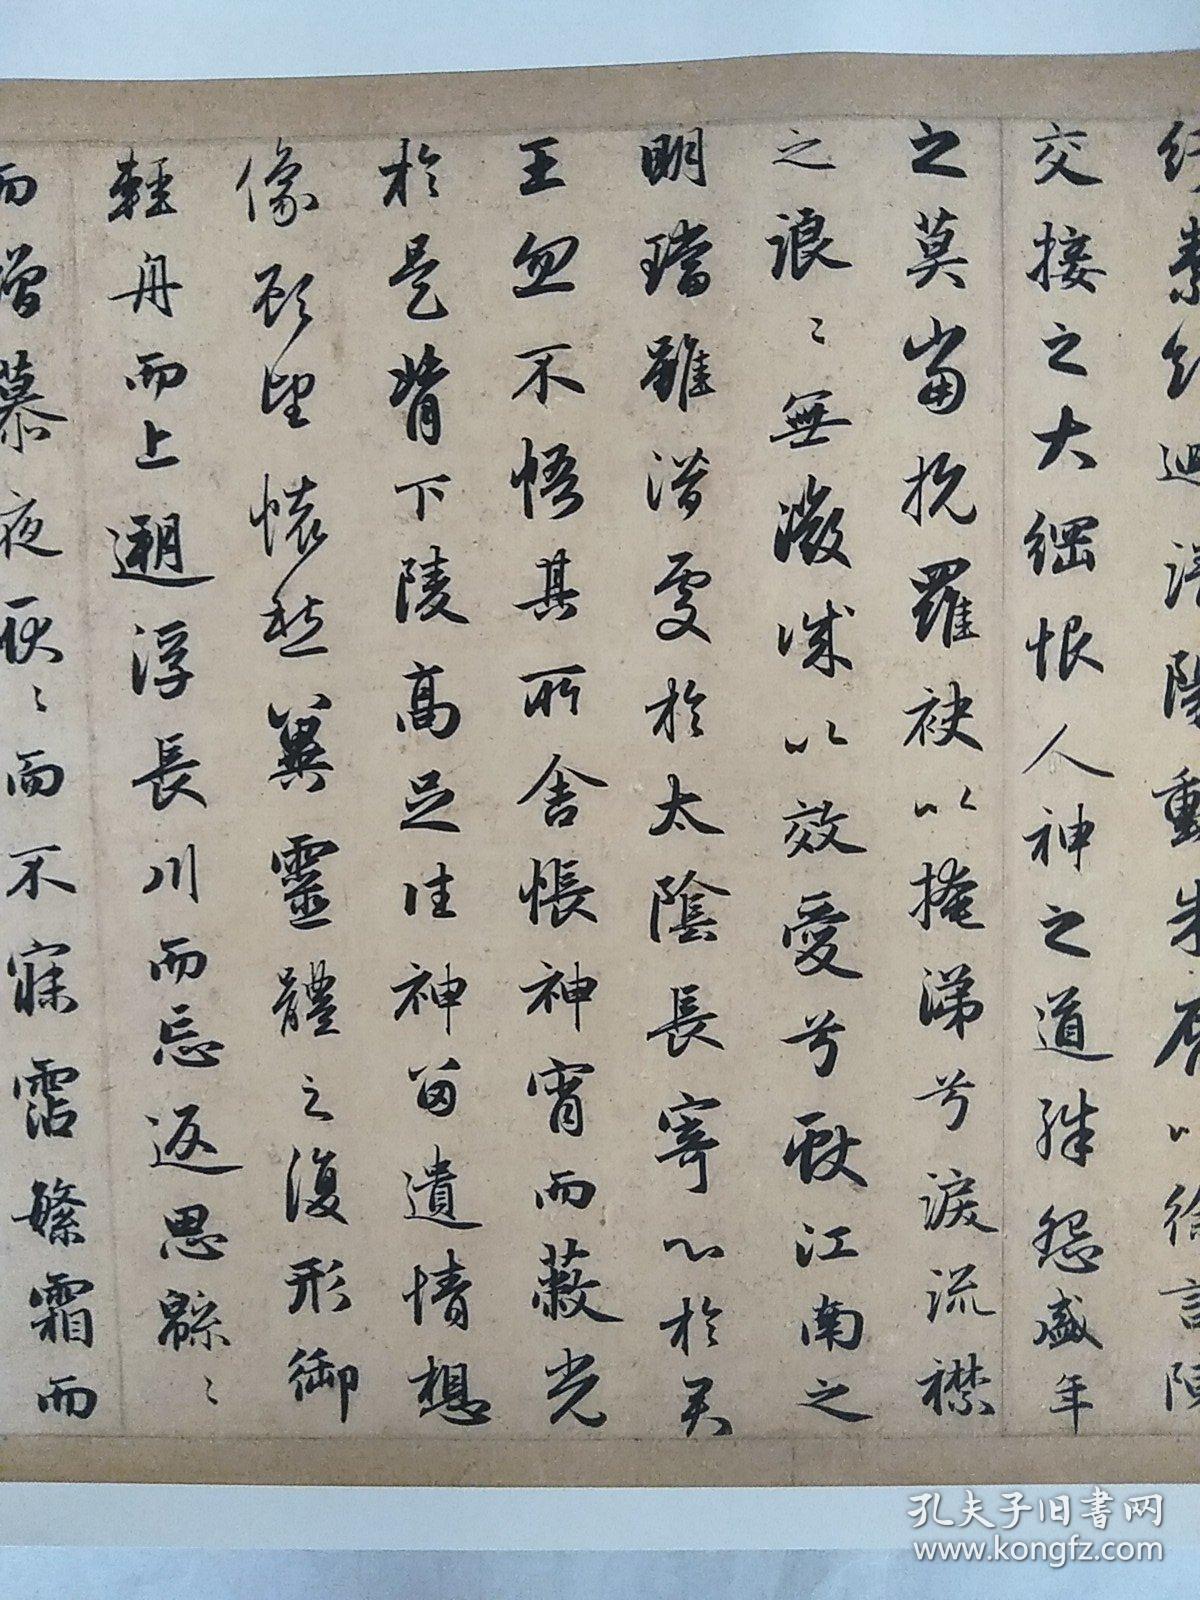 素領迴清陽動朱脣以徐言陳
交接之大綱恨人神之道殊怨盛年
之莫當抗羅袂以掩涕兮淚流襟
之浪〻無微誠以效愛兮獻江南之
明璫雖潛處於太陰長寄心於君
王忽不悟其所舍悵神宵而蔽光
於是背下陵高足往神留遺情想
像顧望懷愁冀靈體之復形御
輕舟而上遡浮長川而忘返思緜〻
而增慕夜耿〻而不寐霑繁霜而
孔夫子旧书网
www.kongfz.com